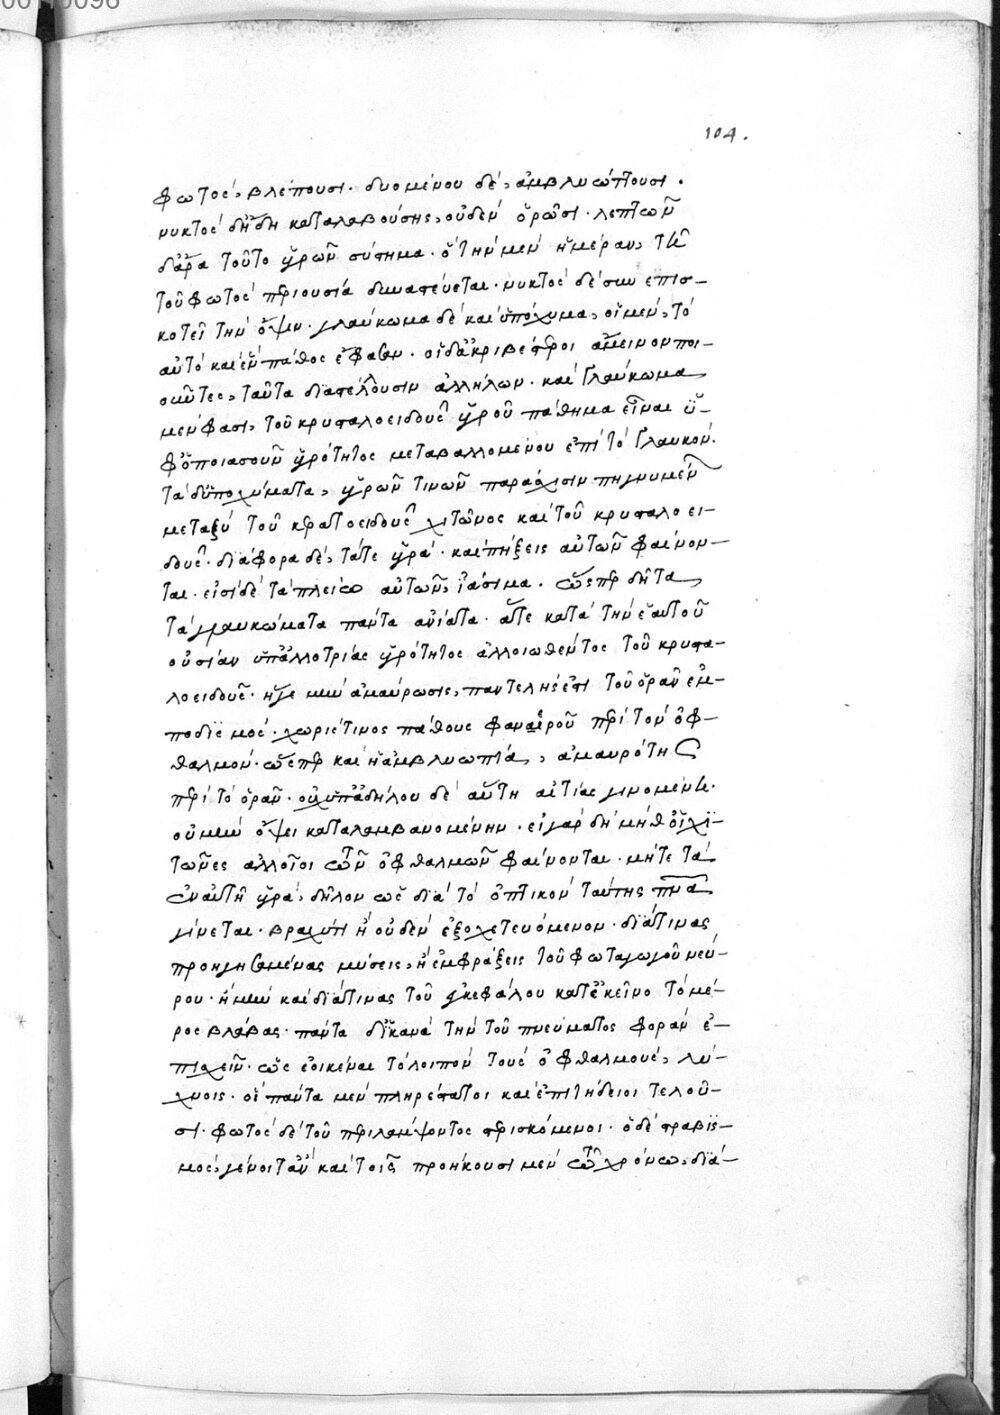 104.
φωτὸς, βλέπουσι. δυομένου δὲ, ἀμβλυώττουσι.
νυκτὸς δ' ἤδη καταλαβούσης, οὐδὲν ὁρῶσι. λεπτῶν
δ' ἄρα τοῦτο ὑγρῶν σύστημα. ὃ τὴν μὲν ἡμέραν, τῆ
τοῦ φωτὸς περιουσία διαπεύεται. νυκτὸς δὲ συνεπισ-
κοτεῖ τὴν ὄψιν. γλαύκωμα δὲ καὶ ὑπόχυμα, οἱ μὲν, τὸ
αὐτὸ καὶ ἓν πάθος ἔφασαν. οἱ δ' ἀκριβέστεροι ἄμεινον ποι-
οῦντες, ταῦτα διαστέλλουσιν ἀλλήλων. καὶ γλαύκωμα
μέν φασι, τοῦ κρυσταλοειδοῦς ὑγροῦ πάθημα εἶναι ὑ-
φ' ὁποιασοῦν ὑγρότητος μεταβαλλομένου ἐπὶ τὸ γλαυκόν.
τὰ δ' ὑποχύματα, ὑγρῶν τινῶν παράχυσιν πηγνυμένων
μεταξὺ τοῦ κερατοειδοῦς χιτῶνος καὶ τοῦ κρυσταλοει-
δοῦς. διάφορα δὲ, τά τε ὑγρά. καὶ πήξεις αὐτῶν φαίνον-
ται. εἰσὶ δὲ τὰ πλείω αὐτῶν, ἰάσιμα. ὥσπερ δῆτα
τὰ γλαυκώματα πάντα ἀνίατα. ἅτε κατὰ τὴν ἑαυτοῦ
οὐσίαν ὑπ' ἀλλοτρίας ὑγρότητος ἀλλοιωθέντος τοῦ κρυστα-
λοειδοῦς. ἥ γε μὴν ἀμαύρωσις, παντελής ἐστι τοῦ ὁρᾶν ἐμ-
ποδισμός. χωρίς τινος πάθους φαναιροῦ περὶ τὸν ὀφ-
θαλμόν. ὥσπερ καὶ ἡ ἀμβλυωπία, ἀμαυρότης
περὶ τὸ ὁρᾶν. οὐχ ὑπ' ἀδήλου δὲ αὕτη αἰτίας γινομένη.
οὐ μὴν ὄψει καταλαμβανομένην. εἰ γὰρ δὴ μήθ' οἱ χι-
τῶνες ἀλλοῖοι τῶν ὀφθαλμῶν φαίνονται. μήτε τὰ
ἐν αὐτῆ ὑγρὰ, δῆλον ὡς διὰ τὸ ὀπτικὸν ταύτης πνα
γίνεται. βραχύτι ἢ οὐδὲν ἐξοχετευόμενον. διά τινας
προηγησαμένας μύσεις, ἢ ἐμφράξεις τοῦ φωταγωγοῦ νεύ-
ρου. ἢ μὴν καὶ διά τινας τοῦ ἐγκεφάλου κατ' ἐκεῖνο τὸ μέ-
ρος βλάβας. πάντα δ' ἱκανὰ τὴν τοῦ πνεύματος φορὰν ἐ-
πισχεῖν. ὡς ἐοικέναι τὸ λοιπὸν τοὺς ὀφθαλμοὺς, λύ-
χνοις. οἳ πάντα μὲν πληρέστατοι καὶ ἐπιτήδειοι τελοῦ-
σι. φωτὸς δὲ τοῦ περιλάμψοντος στερισκόμενοι. ὁ δὲ στραβισ-
μὸς, γένοιτ' ἂν καὶ τοῖς προήκουσι μὲν τῶ χρόνω, διὰ